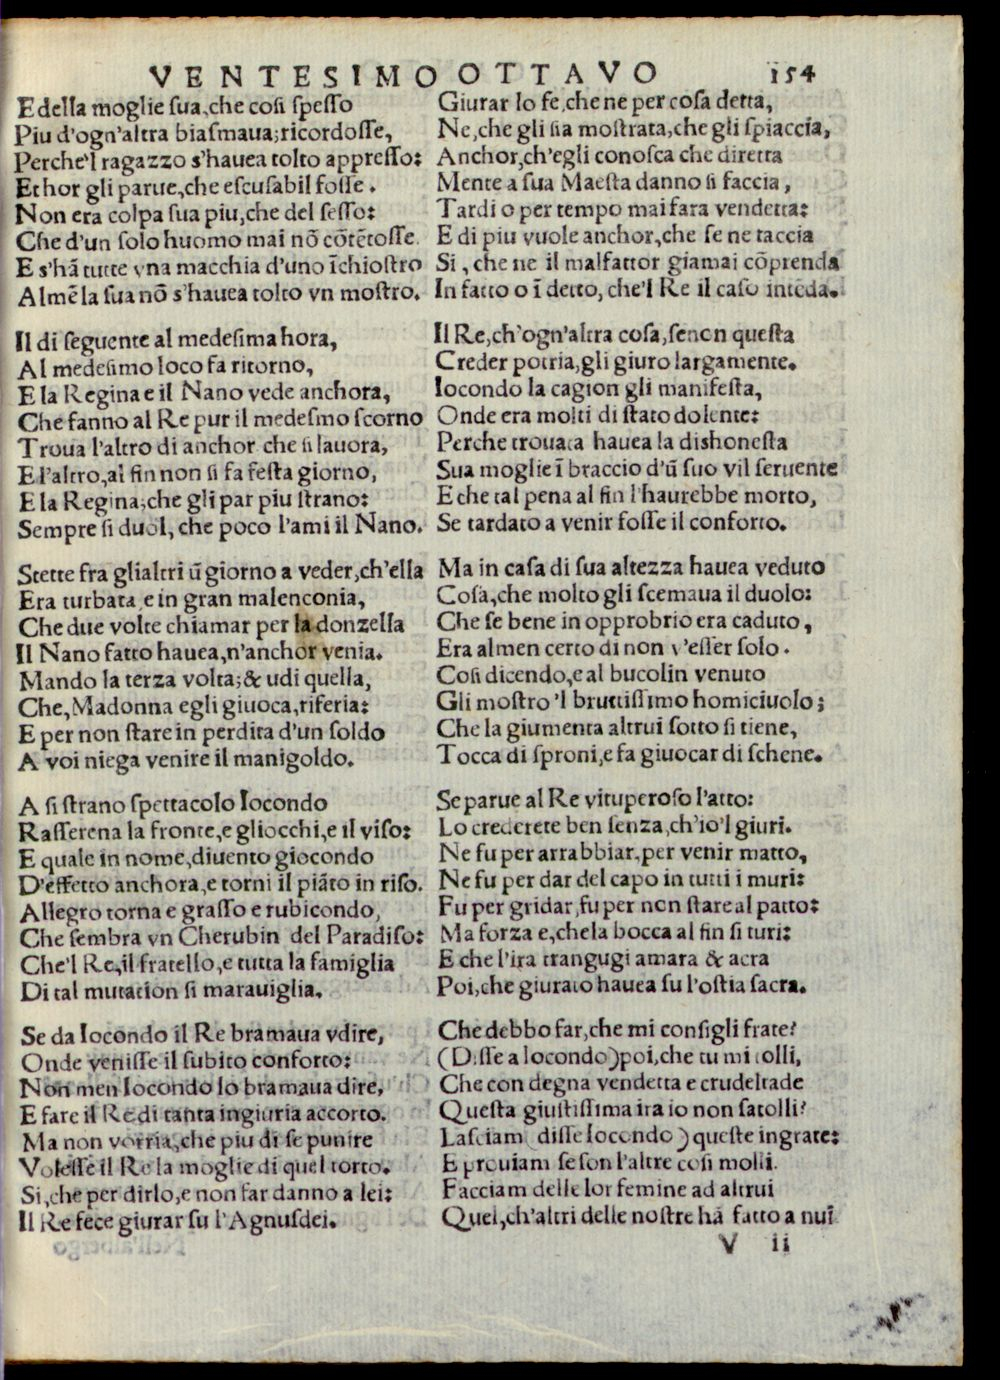 VENTESIMO OTTAVO 154
E della moglie ſua, che coſi ſpeſſo
Piu d'ogn'altra biaſmaua; ricordoſſe,
Perche'l ragazzo s'hauea tolto appreſſo:
Et hor gli parue, che eſcuſabil foſſe.
Non era colpa ſua piu, che del ſeſſo:
Che d'un ſolo huomo mai nō cōtētoſſe.
E s'hā tutte vna macchia d'uno īchioſtro
Almē la ſua nō s'hauea tolto vn moſtro.
Il di ſeguente al medeſima hora,
Al medeſimo loco fa ritorno,
E la Regina e il Nano vede anchora,
Che fanno al Re pur il medeſmo ſcorno
Troua l'altro di anchor che ſi lauora,
E l'altro, al fin non ſi fa feſta giorno,
E la Regina; che gli par piu ſtrano:
Sempre ſi duol, che poco l'ami il Nano.
Stette fra glialtri ū giorno a veder, ch'ella
Era turbata e in gran malenconia,
Che due volte chiamar per la donzella
Il Nano fatto hauea, n'anchor venia.
Mando la terza volta; & udi quella,
Che, Madonna egli giuoca, riferia:
E per non ſtare in perdita d'un ſoldo
A voi niega venire il manigoldo.
A ſi ſtrano ſpettacolo Iocondo
Raſſerena la fronte, e gliocchi, e il viſo:
E quale in nome, diuento giocondo
D'effetto anchora, e torni il piāto in riſo.
Allegro torna e graſſo e rubicondo,
Che ſembra vn Cherubin del Paradiſo:
Che'l Re, il fratello, e tutta la famiglia
Di tal mutation ſi marauiglia.
Se da Iocondo il Re bramaua vdire,
Onde veniſſe il ſubito conforto:
Non men Iocondo lo bramaua dire,
E fare il Re di tanta ingiuria accorto.
Ma non vorria, che piu di ſe punire
Voleſſe il Re la moglie di quel torto.
Si, che per dirlo, e non far danno a lei:
Il Re fece giurar ſu l'Agnuſdei.
Giurar lo fe, che ne per coſa detta,
Ne, che gli ſia moſtrata, che gli ſpiaccia,
Anchor, ch'egli conoſca che diretta
Mente a ſua Maeſta danno ſi faccia,
Tardi o per tempo mai fara vendetta:
E di piu vuole anchor, che ſe ne taccia
Si, che ne il malfattor giamai cōprenda
In fatto o ī detto, che'l Re il caſo intēda.
Il Re, ch'ogn'altra coſa, ſenon queſta
Creder potria, gli giuro largamente.
Iocondo la cagion gli manifeſta,
Onde era molti di ſtato dolente:
Perche trouata hauea la dishoneſta
Sua moglie ī braccio d'ū ſuo vil ſeruente
E che tal pena al fin l'haurebbe morto,
Se tardato a venir foſſe il conforto.
Ma in caſa di ſua altezza hauea veduto
Coſa, che molto gli ſcemaua il duolo:
Che ſe bene in opprobrio era caduto,
Era almen certo di non v'eſſer ſolo.
Coſi dicendo, e al bucolin venuto
Gli moſtro 'l bruttiſſimo homiciuolo;
Che la giumenta altrui ſotto ſi tiene,
Tocca di ſproni, e fa giuocar di ſchene.
Se parue al Re vituperoſo l'atto:
Lo crederete ben ſenza, ch'io'l giuri.
Ne fu per arrabbiar, per venir matto,
Ne fu per dar del capo in tutti i muri:
Fu per gridar, fu per non ſtare al patto:
Ma forza e, che la bocca al fin ſi turi:
E che l'ira trangugi amara & acra
Poi, che giurato hauea ſu l'oſtia ſacra.
Che debbo far, che mi conſigli frate?
(Diſſe a Iocondo) poi, che tu mi tolli,
Che con degna vendetta e crudeltade
Queſta giuſtiſſima ira io non ſatolli?
Laſciam (diſſe Iocondo) queſte ingrate:
E prouiam ſe ſon l'altre coſi molli.
Facciam delle lor femine ad altrui
Quel, ch'altri delle noſtre hā fatto a nui
V ii